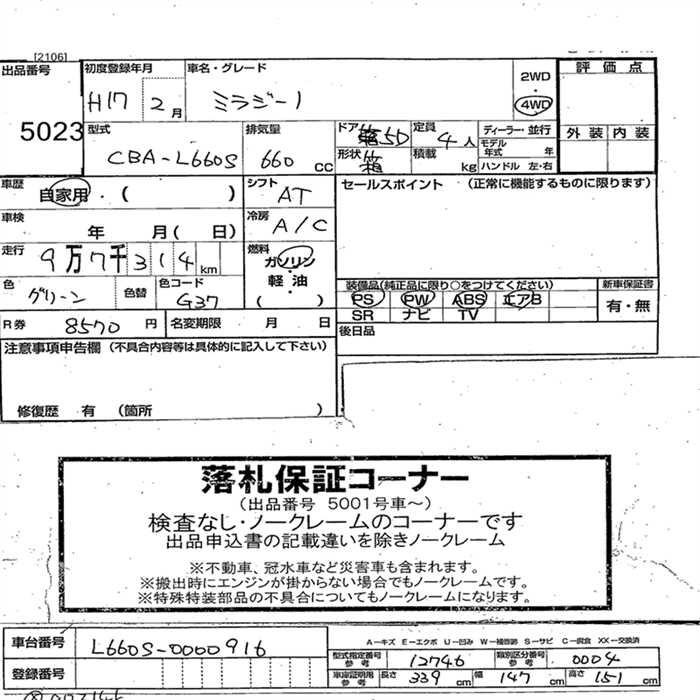 [2106]
出品番号 初度登録年月 車名・グレード 評価点
5023 H17 2月 ミラジーノ 2WD 4WD
型式 排気量 ドア 5D 定員 4人 ディーラー・並行 外装 内装
CBA-L660S 660 CC 形状 箱 積載 kg モデル年式 年 ハンドル 左・右
車歴 自家用・( ) シフト AT セールスポイント (正常に機能するものに限ります)
車検 年 月( 日) 冷房 A/C
走行 9万7千314km 燃料 ガソリン 軽・油 ( )
色 グリーン 色替 色コード G37
装備品(純正品に限り○をつけてください) 新車保証書
PS PW ABS エアB 有・無
SR ナビ TV
R券 8570円 名変期限 月 日 後日品
注意事項申告欄 (不具合内容等は具体的に記入して下さい)
修復歴 有 (箇所 )
落札保証コーナー
(出品番号 5001号車~)
検査なし・ノークレームのコーナーです
出品申込書の記載違いを除きノークレーム
※不動車、冠水車など災害車も含まれます。
※搬出時にエンジンが掛からない場合でもノークレームです。
※特殊特装部品の不具合についてもノークレームになります。
A-キズ E-エクボ U-凹み W-補修跡 S-サビ C-腐食 XX-交換済
車台番号 L660S-0000916
型式指定番号 参考 12746 類別区分番号 参考 0004
登録番号
車庫証明用 参考 長さ 339cm 幅 147cm 高さ 151cm